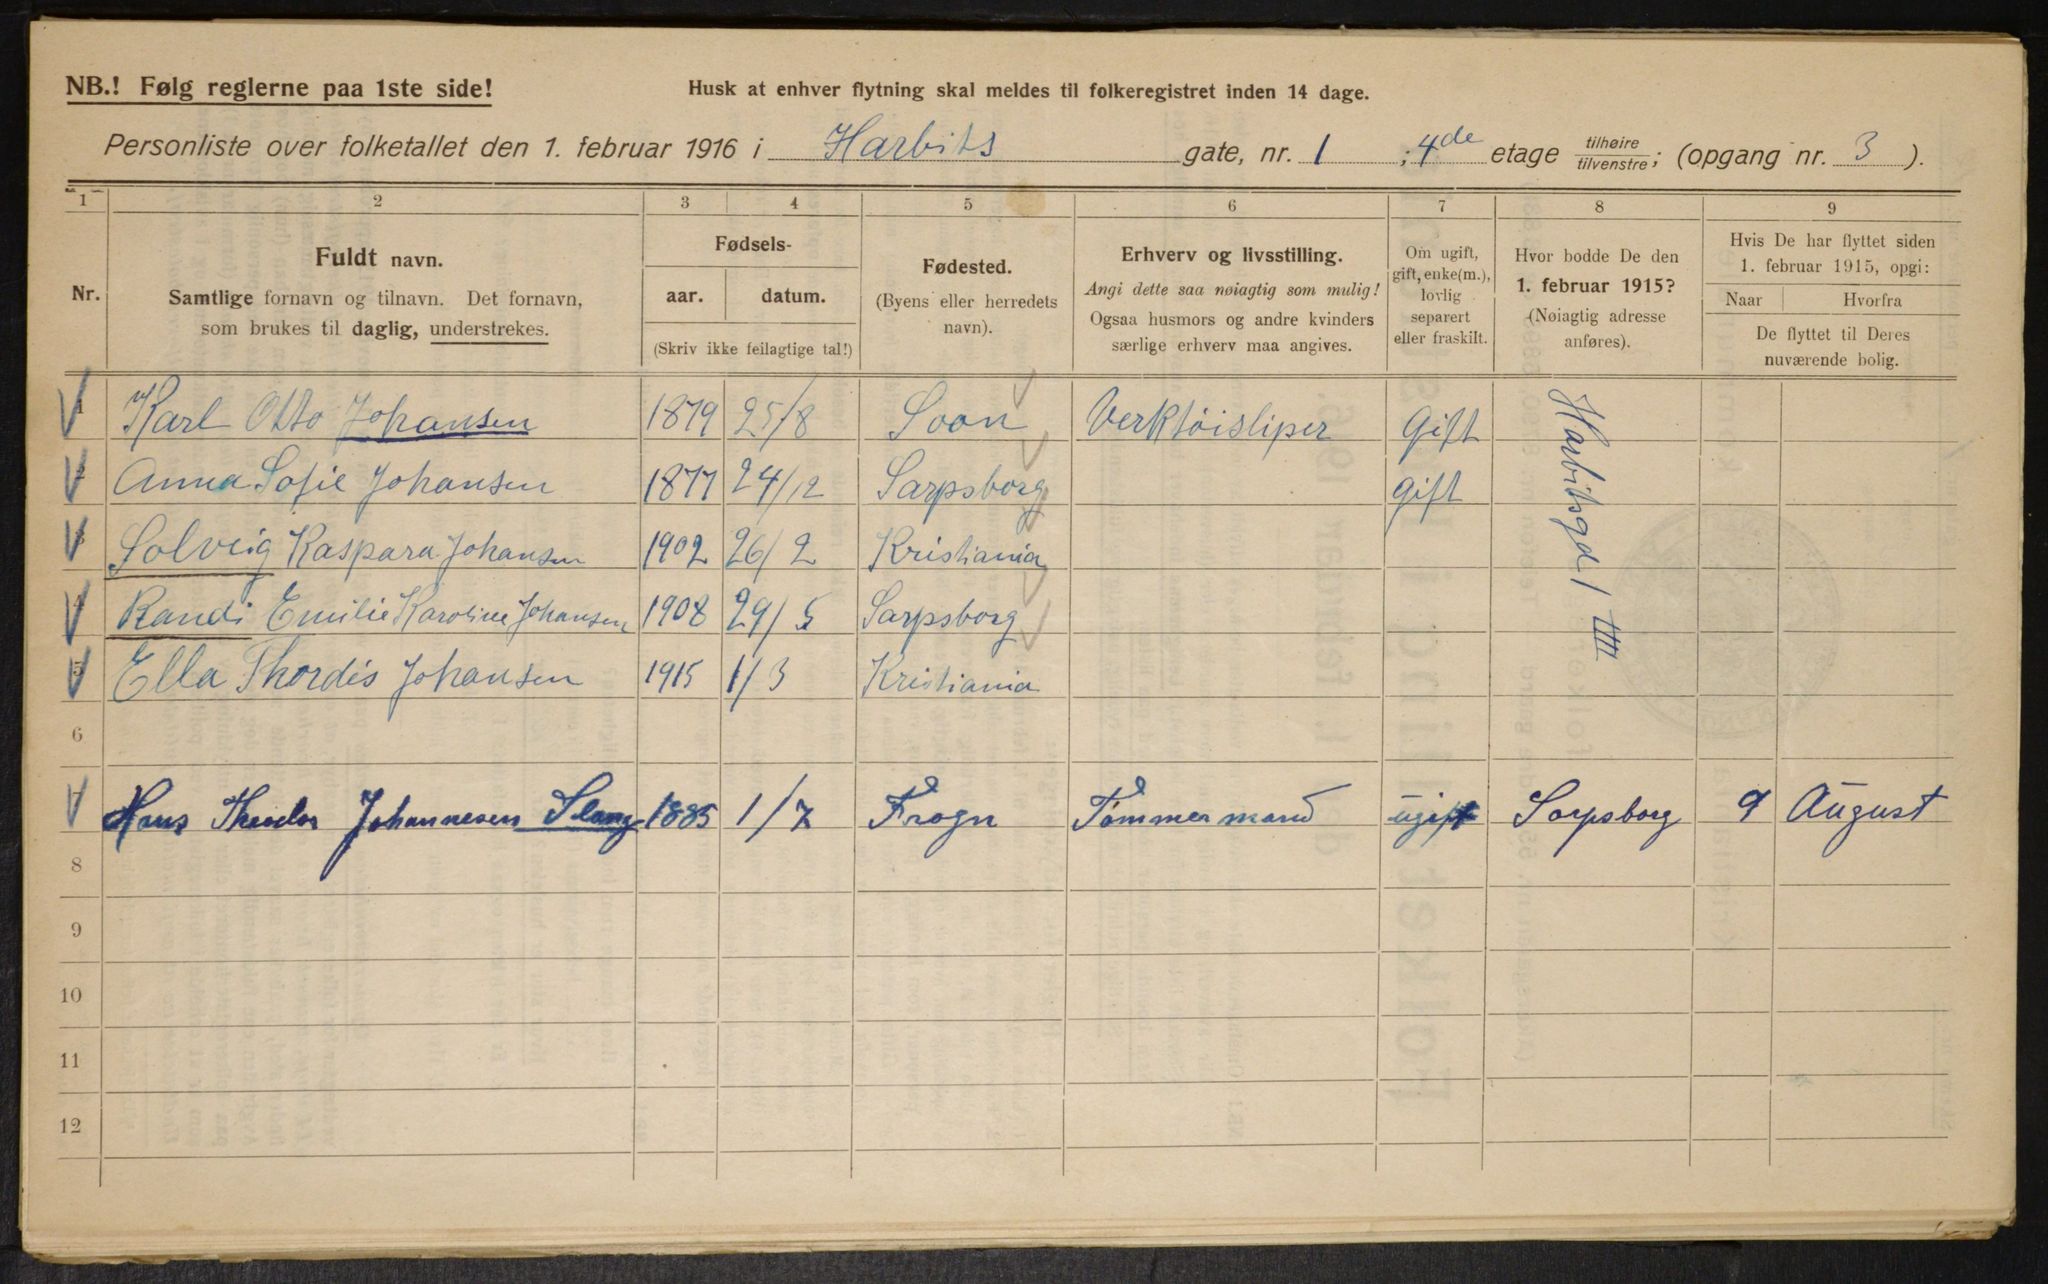 NB.! Følg reglerne paa 1ste side!
Husk at enhver flytning skal meldes til folkeregistret inden 14 dage.
Personliste over folketallet den 1. februar 1916 i Harbits gate, nr. 1 ; 4de etage tilhøire/tilvenstre; (opgang nr. 3 ).
1 2 3 4 5 6 7 8 9
Nr.
Fuldt navn.
Samtlige fornavn og tilnavn. Det fornavn,
som brukes til daglig, understrekes.
Fødsels-
aar. datum.
(Skriv ikke feilagtige tal!)
Fødested.
(Byens eller herredets
navn).
Erhverv og livsstilling.
Angi dette saa nøiagtig som mulig!
Ogsaa husmors og andre kvinders
særlige erhverv maa angives.
Om ugift,
gift, enke(m.),
lovlig
separert
eller fraskilt.
Hvor bodde De den
1. februar 1915?
(Nøiagtig adresse
anføres).
Hvis De har flyttet siden
1. februar 1915, opgi:
Naar Hvorfra
De flyttet til Deres
nuværende bolig.
1 Karl Otto Johansen 1879 25/8 Soon Verktøisliper Gift Harbitsgd 1 IIII
2 Anna Sofie Johansen 1877 24/12 Sarpsborg gift
3 Solveig Kaspara Johansen 1902 26/2 Kristiania
4 Randi Emilie Karoline Johansen 1908 29/5 Sarpsborg
5 Ella Thordis Johansen 1915 1/3 Kristiania
6
7 Hans Theodor Johannesen Slang 1885 1/7 Frogn Tømmermand ugift Sarpsborg 9 August
8
9
10
11
12